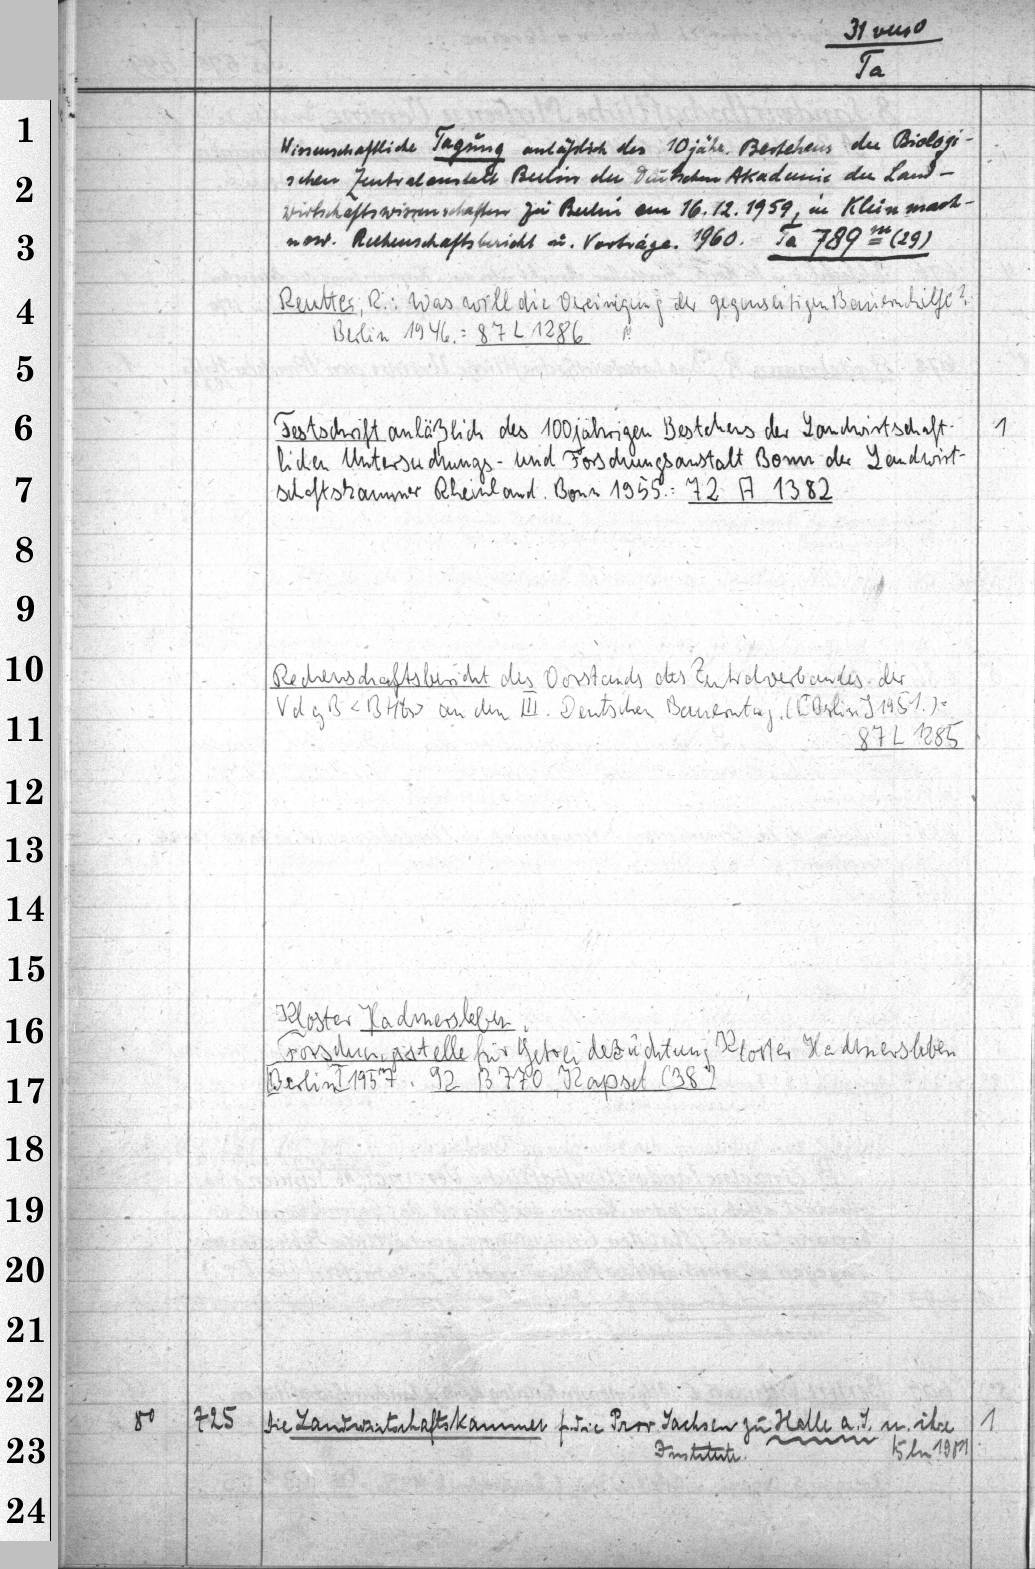 31 verso
Ta
1
Wissenschaftliche Tagung anläßlich des 10jähr. Bestehens der Biologi-
2
schen Zentralanstalt Berlin der Deutschen Akademie der Land-
wirtschaftswissenschaften zu Berlin am 16.12.1959, in Klein mach-
3
now. Rechenschaftsbericht u. Vorträge. 1960. Ta 789 m (29)
4
Reutter, R.: Was will die Vereinigung der gegenseitigen Bauernhilfe?
Berlin 1946.= 87 L 1286
5
6
Festschrift anläßlich des 100jährigen Bestehens der Landwirtschaft- 1
lichen Untersuchungs- und Forschungsanstalt Bonn der Landwirt-
7
schaftskammer Rheinland. Bonn 1955.= 72 A 1382
8
9
10
Rechenschaftsbericht des Vorstands des Zentralverbandes der
VdgB <BHG> an den III. Deutschen Bauerntag. ([Berlin] 1951.)=
11
87 L 1285
12
13
14
15
16
Kloster Hadmersleben.
Forschungsstelle für Getreidezüchtung Kloster Hadmersleben
17
[Berlin] 1957. 92 B 770 Kapsel (38)
18
19
20
21
22
8° 725 Die Landwirtschaftskammer f. die Prov Sachsen zu Halle a. S. u. ihre 1
23
Institute. 1901
24